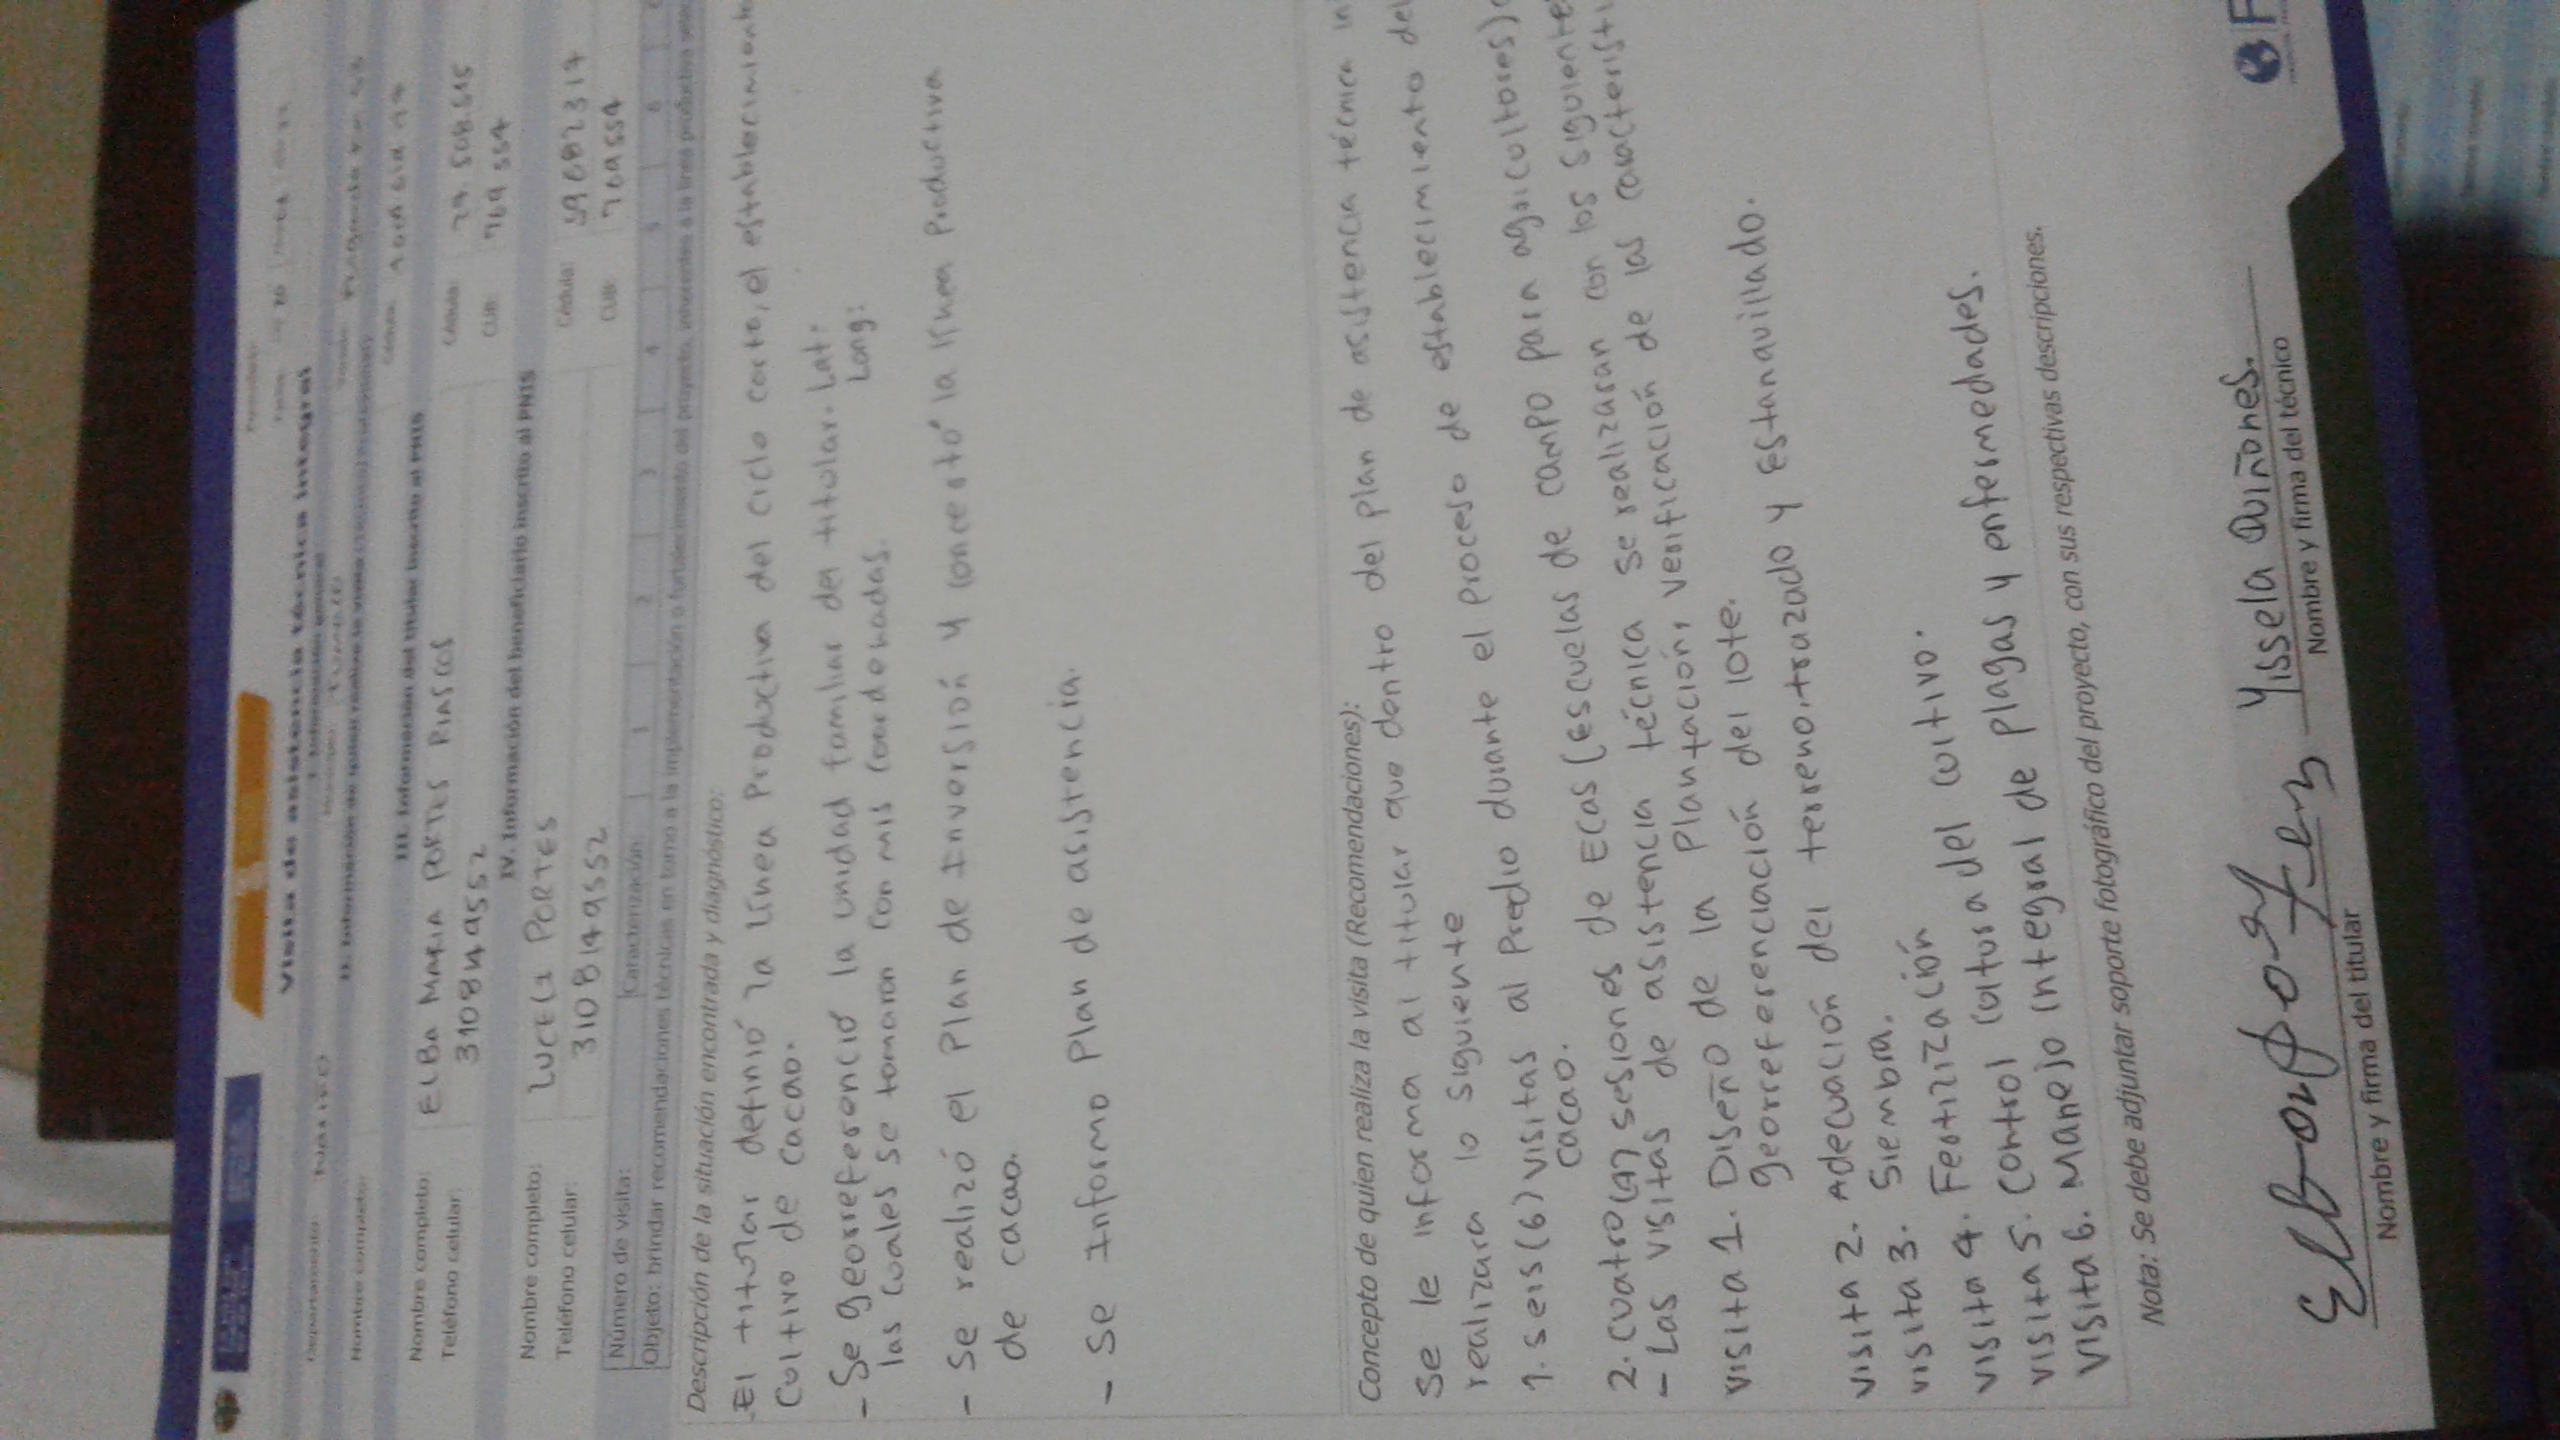 Visita de asistencia técnica integral
I. Información general
Departamento: NARIÑO Municipio: TUMACO
II. Información de quien realiza la visita
Nombre completo:
III. Información del titular inscrito al PNIS
Nombre completo: ELBA MARIA PORTES RIASCOS Cédula:
Teléfono celular: 3108149552 CUB: 769554
IV. Información del beneficiario inscrito al PNIS
Nombre completo: LUCELI PORTES Cédula: 59682317
Teléfono celular: 3108149552 CUB: 769554
Número de visita: Caracterización 1 2 3 4 5 6
Objeto: brindar recomendaciones técnicas en torno a la implementación o fortalecimiento del proyecto, inherentes a la línea productiva
Descripción de la situación encontrada y diagnóstico:
El titular definió la línea Productiva del ciclo corto, el establecimiento
cultivo de cacao.
- Se georreferenció la unidad familiar del titular. Lat:
las cuales se tomaron con mis coordenadas. Long:
- Se realizó el Plan de Inversión y concertó la línea Productiva
de cacao.
- Se Informo Plan de asistencia.
Concepto de quien realiza la visita (Recomendaciones):
Se le informa al titular que dentro del plan de asistencia técnica
realizara lo siguiente
1. seis (6) visitas al Predio durante el Proceso de establecimiento del
cacao.
2. cuatro (4) sesiones de Ecas (Escuelas de campo para agricultores)
- Las visitas de asistencia técnica se realizaran con los siguiente
visita 1. Diseño de la Plantación, verificación de las
georreferenciación del lote.
visita 2. Adecuación del terreno, trazado y estanquillado.
visita 3. Siembra.
visita 4. Fertilización
visita 5. Control cultural del cultivo.
visita 6. Manejo integral de plagas y enfermedades.
Nota: Se debe adjuntar soporte fotográfico del proyecto, con sus respectivas descripciones.
Yissela Quiñones.
Nombre y firma del titular Nombre y firma del técnico